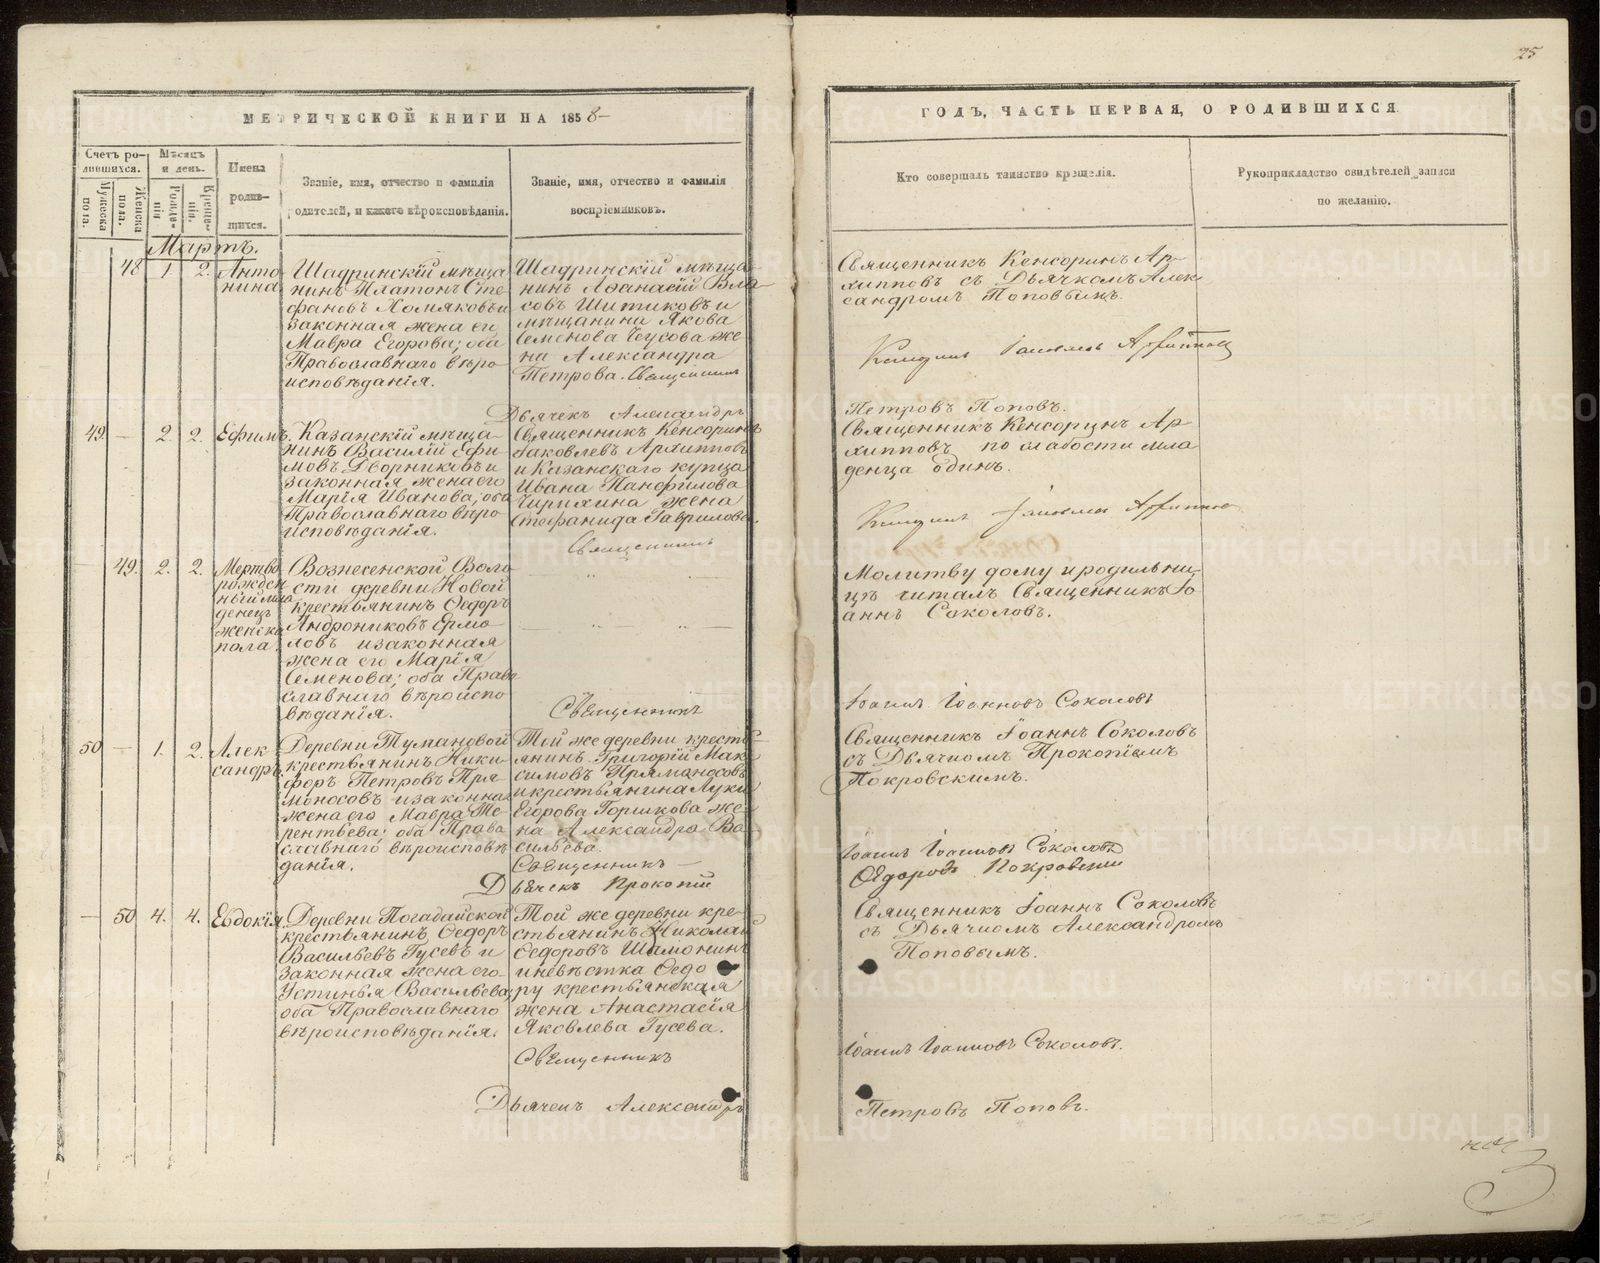 25
МЕТРИЧЕСКОЙ КНИГИ НА 1858
ГОДЪ, ЧАСТЬ ПЕРВАЯ, О РОДИВШИХСЯ.
Счетъ ро-
дившихся.
Мужеска
пола.
Женска
пола.
Мѣсяцъ
и день.
Рожде-
нія
Креще-
нія.
Имена
родив-
шихся.
Званіе, имя, отчество и фамилія
родителей, и какого вѣроисповѣданія.
Званіе, имя, отчество и фамилія
воспріемниковъ.
Кто совершалъ таинство крещенія.
Рукоприкладство свидѣтелей записи
по желанію.
Мартъ.
48 1 2.
Анто
нина
Шадринскій мѣща
нинъ Платонъ Сте
фановъ Хомяковъ и
законная жена его
Мавра Егорова; оба
Православнаго вѣро
исповѣданія.
Шадринскій мѣща-
нинъ Аѳанасій Вла
совъ Шитиковъ и
мѣщанина Якова
Семенова Чусова же
на Александра
Петрова. Священникъ
Дьячекъ Александръ
Священникъ Кенсоринъ Ар-
хипповъ съ Дьячкомъ Алек
сандромъ Поповымъ.
Петровъ Поповъ.
49. — 2 2.
Ефимъ.
Казанскій мѣща-
нинъ Василій Ефи
мовъ Дворниковъ и
законная жена его
Марія Иванова; оба
Православнаго вѣро
исповѣданія.
Священникъ Кенсоринъ
Іаковлевъ Архипповъ
и Казанскаго купца
Ивана Панфилова
Чирихина жена
Стефанида Гаврилова.
Священникъ
Священникъ Кенсоринъ Ар-
хипповъ по слабости мла
денца одинъ.
— 49. 2. 2.
Мертво
рожден
ный мла
денецъ
женска
пола.
Вознесенской Воло
сти деревни Новой
крестьянинъ Ѳедоръ
Андрониковъ Ермо
ловъ и законная
жена его Марія
Семенова; оба Право
славнаго вѣроиспо
вѣданія.
Священникъ
Молитву дому и родильни-
цѣ читалъ Священникъ Іо
аннъ Соколовъ.
Іоаннъ Іоанновъ Соколовъ
50 — 1. 2.
Алек
сандръ.
Деревни Тумановой
крестьянинъ Ники
форъ Петровъ Пря
моносовъ и законная
жена его Мавра Те
рентьева; оба Право
славнаго вѣроисповѣ
данія.
Той же деревни кресть
янинъ Григорій Мак
симовъ Прямоносовъ
и крестьянина Луки
Егорова Горшкова же-
на Александра Ва
сильева.
Священникъ —
Дьячекъ Прокопій
Священникъ Іоаннъ Соколовъ
съ Дьячкомъ Прокопіемъ
Покровскимъ.
Іоаннъ Іоанновъ Соколовъ
Ѳедоровъ Покровскій
— 50 4. 4.
Евдокія.
Деревни Погадайской
крестьянинъ Ѳедоръ
Васильевъ Гусевъ и
законная жена его
Устинья Васильева;
оба Православнаго
вѣроисповѣданія.
Той же деревни кре-
стьянинъ Николай
Ѳедоровъ Шамонинъ
и невѣстка Ѳедо
ру крестьянская
жена Анастасія
Яковлева Гусева.
Священникъ
Дьячекъ Александръ
Священникъ Іоаннъ Соколовъ
съ Дьячкомъ Александромъ
Поповымъ.
Іоаннъ Іоанновъ Соколовъ.
Петровъ Поповъ.
METRIKI.GASO-URAL.RU